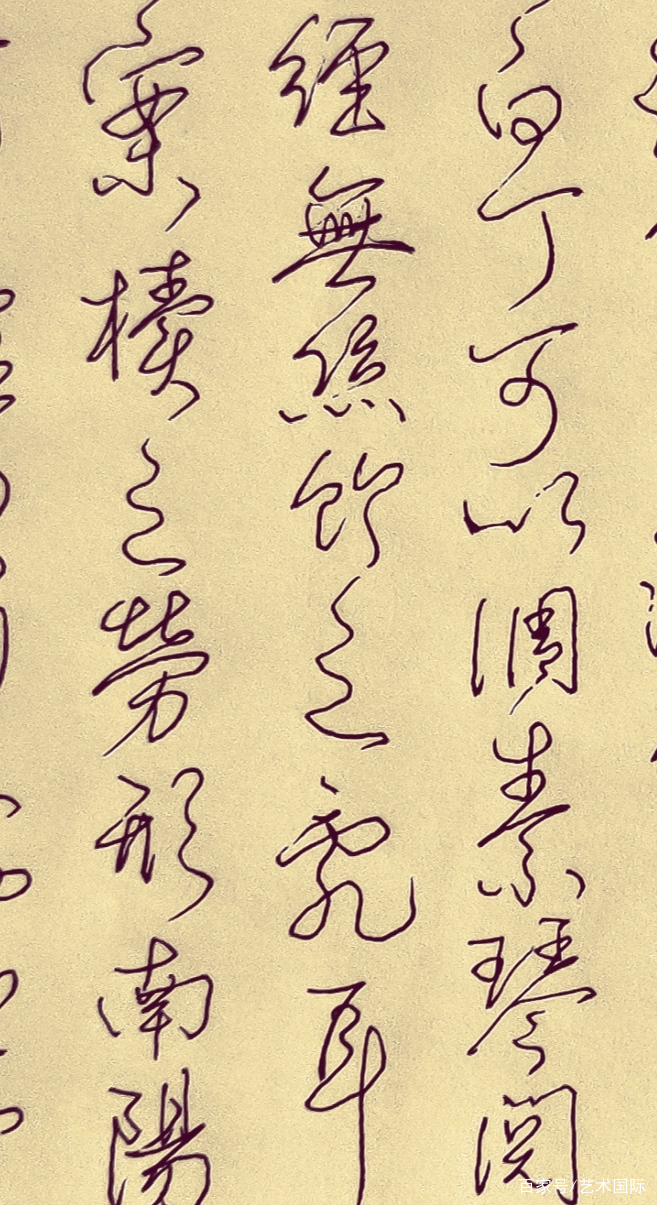 白丁可以調素琴閱
經無絲竹之亂耳
案牘之勞形南陽
百家号/艺术国际